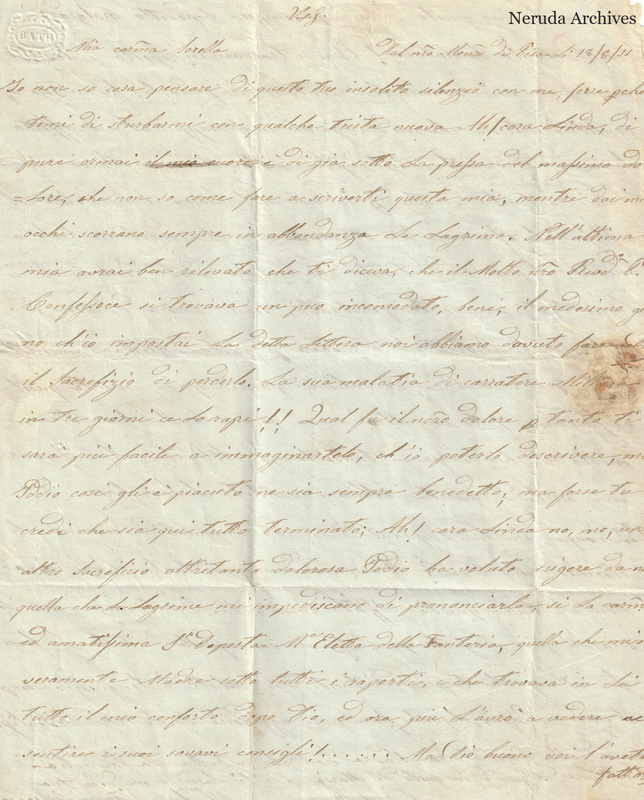 Neruda Archives
BATH
V.S.G.
Mia carma Sorella Dal nro Monro di Pisa Li 18/6/51
Io non so cosa pensare di questo tuo insolito silenzio con me, forse pche
temi di sturbarmi con qualche trista nuova Ah! cara Linda, di
pure ormai il mio cuore è di già sotto La pressa del massimo do
=lore, che non so come fare a scriverti questa mia, mentre dai mi
occhi scorrano sempre in abbondanza Le Lagrime. Nell'ultima
mia avrai ben rilevato che ti diceva, che il Molto nro Revd
Confessore si trovava un puo incomodato, bene, il medesimo gi
no ch'io impostai La detta Lettera noi abbiamo dovuto fare
il Sacrefizio di perderlo. La sua malatia di carratere
in tre giorni ce Lo rapì!! Qual fu il nōro dolore p tanto te
sarà più facile a immaginartelo, ch'io poterlo descrivere, ma
Iddio così gli è piaciuto ne sia sempre benedetto; ma forse tu
credi che sia qui tutto terminato; Ah! cara Linda no, no, un
altro Sacreficio altretanto doloroso Iddio ha voluto esigere da n
quella che Le Lagrime mi impediscano di pronunciarla, si La carm
ed amatissima Sr Deposta Ma Eletta della Fanteria, quella che mi e
seramente Madre sotto tutti i raporti, e che trovava in Lei
tutto il mio conforto dopo Dio, ed ora più L'avrò a vedere ne
sentire i suoi soavi consigli!...... Ma Dio buono voi l'avete
fatto